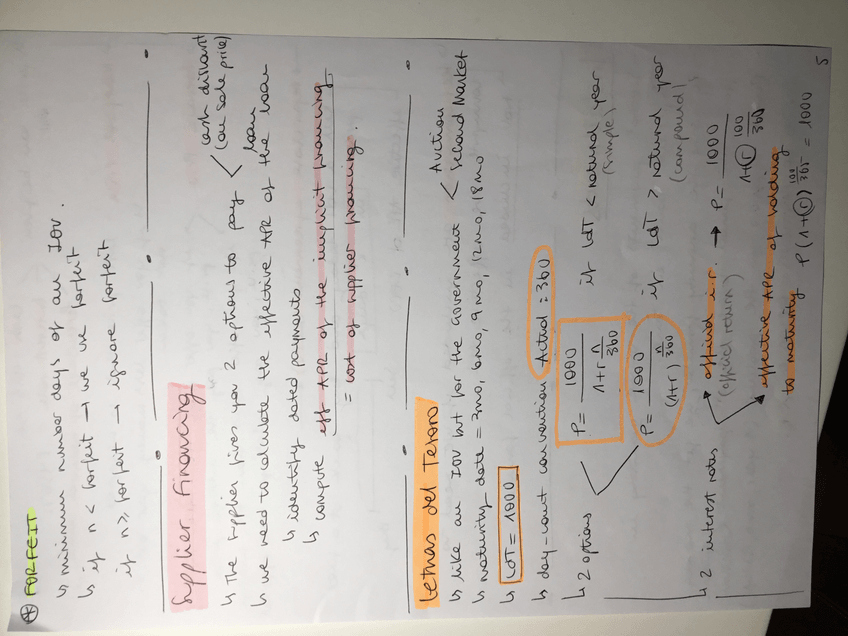 * FORFEIT
↳ minimum number days of an IOU.
↳ if n < forfeit → we use forfeit
if n ≥ forfeit → ignore forfeit
Supplier Financing
↳ The supplier gives you 2 options to pay < cash discount (on sale price)
loan
↳ we need to calculate the effective APR of the loan
↳ identify dated payments
↳ compute eff APR of the implicit financing
= cost of supplier financing.
Letras del Tesoro
↳ like an IOU but for the government < Auction
Second Market
↳ maturity date = 3mo, 6mo, 9mo, 12mo, 18mo
↳ LdT = 1000
↳ day-count convention Actual : 360
↳ 2 options
P = 1000 / (1 + r n/360) if LdT < natural year (simple)
P = 1000 / (1+r)^(n/360) if LdT > natural year (compound)
↳ 2 interest rates
official i.r. → P = 1000 / (1 + (r) 100/360)
(official return)
effective APR of holding to maturity P(1+(r))^(100/365) = 1000
5